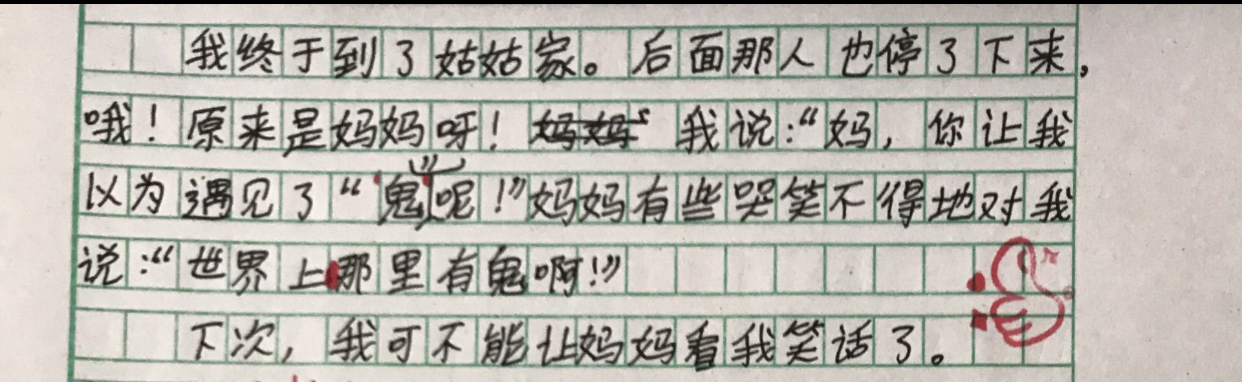 我终于到了姑姑家。后面那人也停了下来,
哦！原来是妈妈呀！我说:“妈,你让我
以为遇见了“鬼”呢!”妈妈有些哭笑不得地对我
说:“世界上那里有鬼啊!”
下次,我可不能让妈妈看我笑话了。